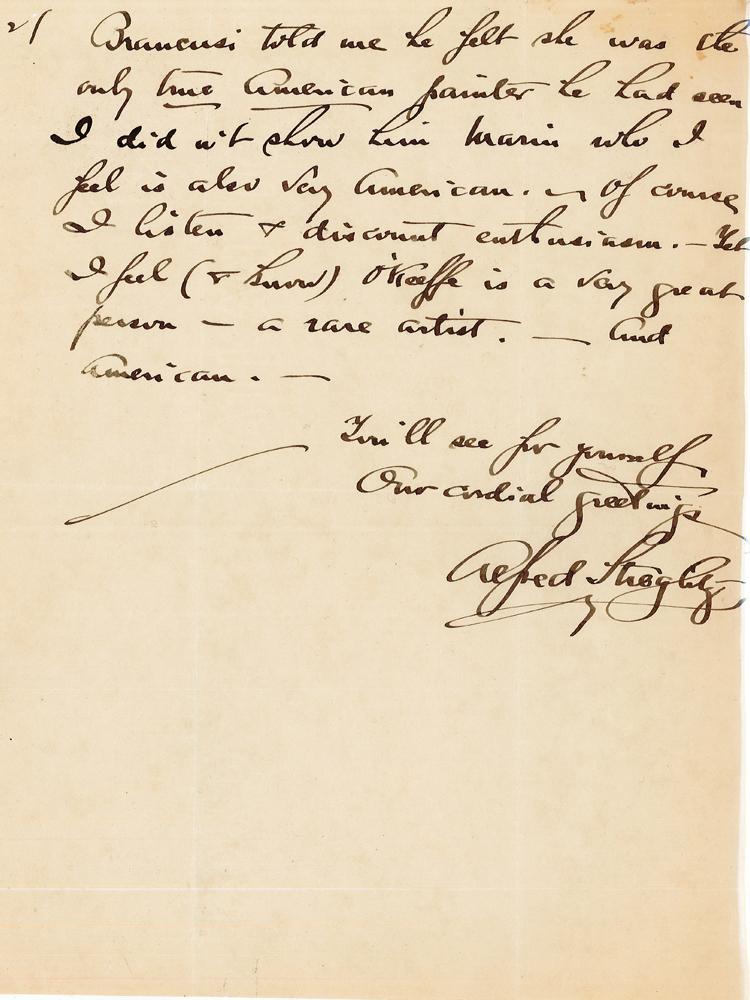 2/ Brancusi told me he felt she was the
only true American painter he had seen
I did n't show him Marin who I
feel is also very American. — Of course
I listen & discount enthusiasm. — Yet
I feel (& know) O'Keeffe is a very great
person — a rare artist. — And
American. —
You'll see for yourself
Our cordial greetings
Alfred Stieglitz